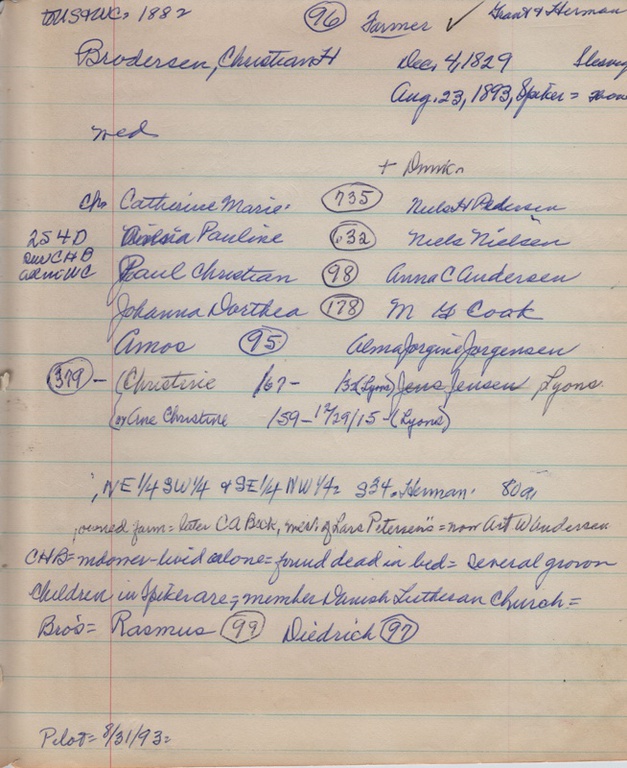 to US & WC: 1882 (96) Farmer ✓ Grant & Herman
Brodersen, Christian H Dec. 4, 1829 Slesvig
Aug. 23, 1893, Spiker =
wed
+ Danish
ch. Catherine Marie (735) Niels H Pedersen
Pauline (632) Niels Nielsen
254D
CHB
adm WC
Paul Christian (98) Anna C Andersen
Johanna Dorthea (178) M G Cook
Amos (95) Alma Jorgine Jorgensen
(379) - (Christine /67- (Lyons) Jens Jensen Lyons
(or Ane Christine /59- 12/29/15 - (Lyons)
NE 1/4 SW 1/4 & SE 1/4 NW 1/4 = S34. Herman. 80a
owned farm = later C A Beck, "mer. of Lars Petersen's" = now Art W Anderson
CHB = widower - lived alone = found dead in bed = Several grown
children in Spiker are; member Danish Lutheran Church =
Bro's = Rasmus (99) Diedrich (97)
Pilot = 8/31/93 =